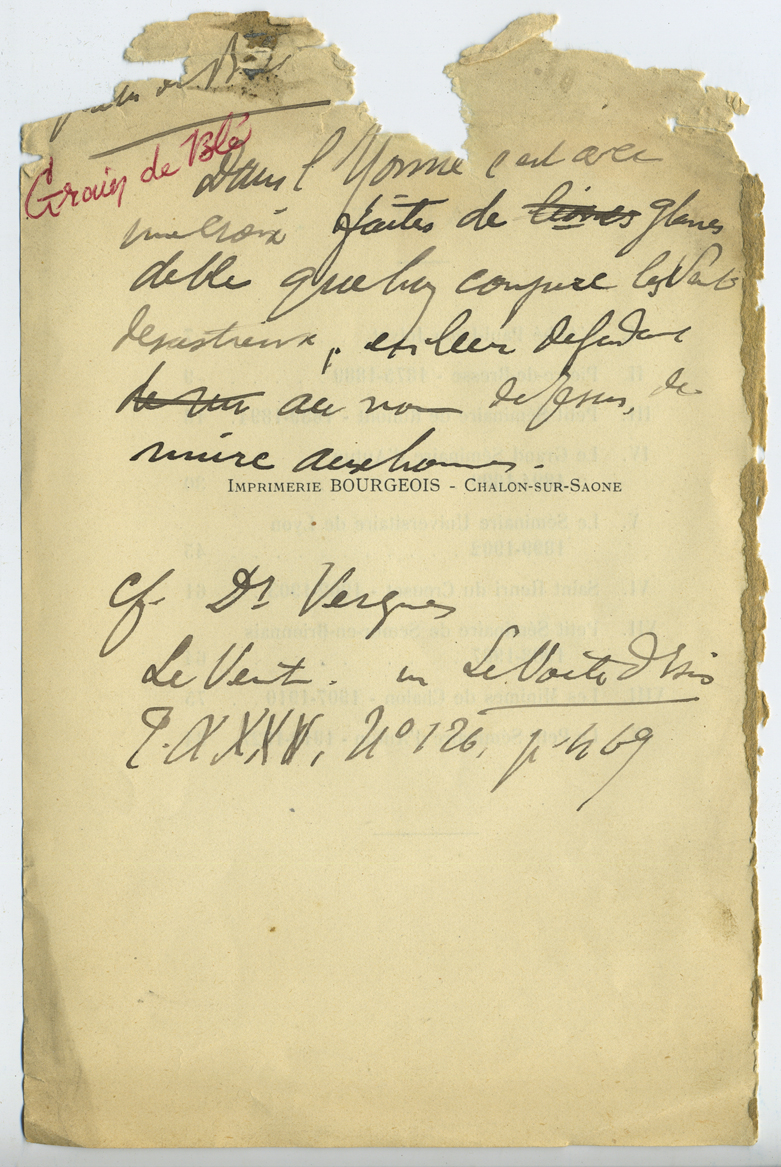 de Blé
Grain de Blé
Dans l'Yonne c'est avec
une croix faites de glanes
de blé que l'on conjure les Vents
desastreux, en leur defendant
au nom de Jesus, de
nuire aux hommes.
IMPRIMERIE BOURGEOIS - CHALON-SUR-SAONE
Cf. Dr Vergnes
Le Vent. in Le Voile d'Isis
T. XXXV, No 126, p. 469